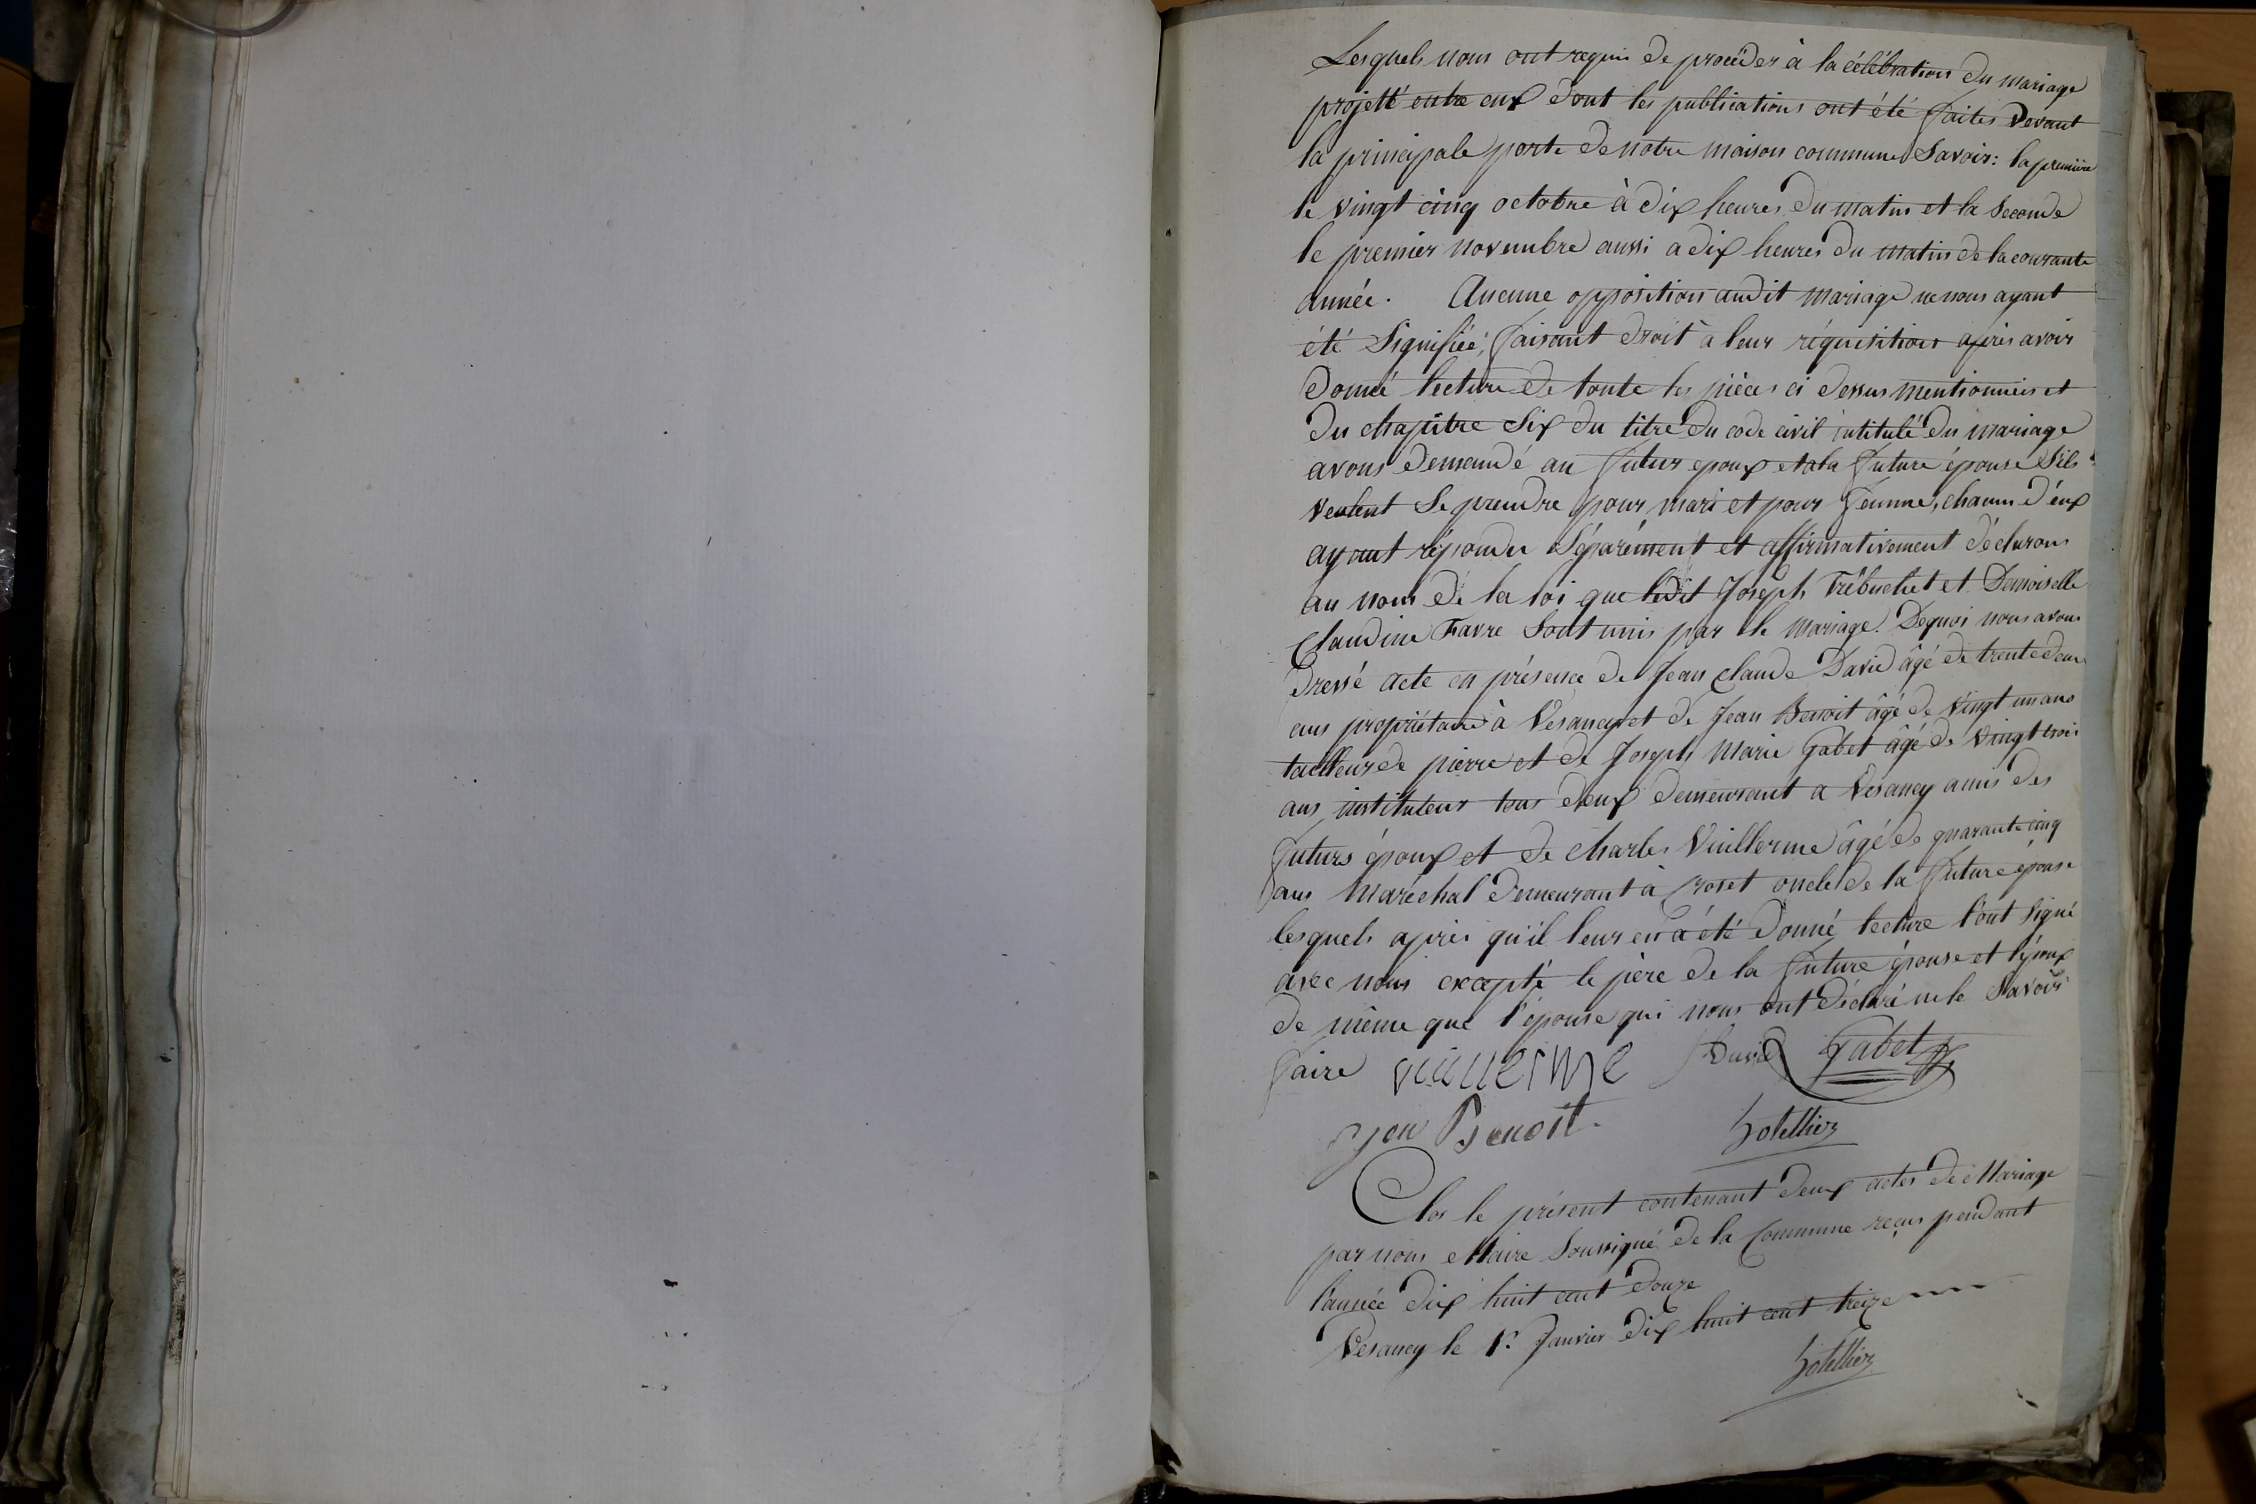 Lesquels nous ont requis de procéder à la célébration du mariage
projetté entre eux dont les publications ont été faites devant
la principale porte de notre maison commune Savoir: la première
le vingt cinq octobre à dix heures du matin et la Seconde
le premier novembre aussi a dix heures du matin de la courante
année. Aucune opposition audit mariage ne nous ayant
été Signifiée; faisant droit à leur réquisition après avoir
donné lecture de toute les pièces ci dessus mentionnées et
du chapitre Six du titre du code civil intitulé du mariage
avons demandé au futur epoux et a la future épouse S'ils
veulent Se prendre pour mari et pour femme, chacun d'eux
ayant répondu Séparément et affirmativement déclarons
au nom de la loi que ledit Joseph Trébuchet et Demoiselle
Claudine Favre Sont unis par le mariage. Dequoi nous avons
dressé acte en présence de Jean Claude David âgé de trente deux
ans propriétaire à Vesancy et de Jean Benoit âgé de vingt un ans
tailleur de pierre et de Joseph Marie Gabet âgé de vingt trois
ans instituteur tous deux demeurant a Vesancy amis des
futurs époux et de Charles Vuillerme âgé de quarante cinq
ans maréchal demeurant à Croset oncle de la future épouse
lesquels après qu'il leur en a été donné lecture l'ont Signé
avec nous excepté le père de la future épouse et l'époux
de même que l'épouse qui nous ont déclaré ne le Savoir
faire vuillerme David Gabet
Jen Benoit. hotellier
Clos le présent contenant deux actes de Mariage
par nous Maire Soussigné de la Commune reçus pendant
l'année dix huit cent douze
Vesancy le 1r. Janvier dix huit cent treize
hotellier